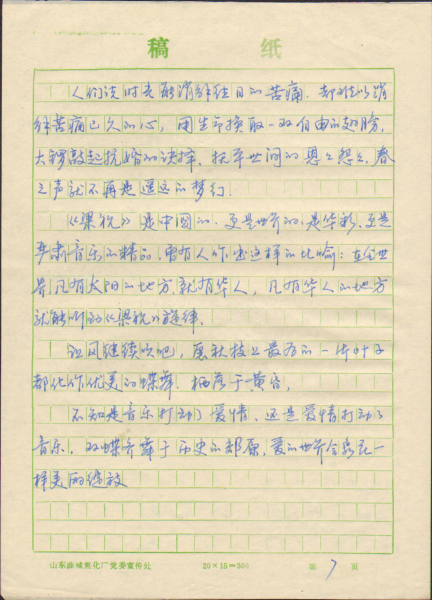 稿 纸
人们说时光能消解往日的苦痛,却难以消
解苦痛已久的心,用生命换取一双自由的翅膀,
大锣敲起抗婚的诀择,抚平世间的恩恩怨怨,春
之声就不再是遥远的梦幻.
《梁祝》是中国的,更是世界的,是华彩,更是
严肃音乐的精品,曾有人作出这样的比喻:在全世
界凡有太阳的地方,就有华人,凡有华人的地方
就能听到《梁祝》旋律.
让风继续吹吧,愿秋枝上最后的一片叶子
都化作优美的蝶舞,栖落于黄昏,
不知是音乐打动了爱情,还是爱情打动了
音乐,双蝶齐舞于历史的郊原,爱的世界会象花一
样美丽绽放
山东薛城焦化厂党委宣传处 20×15=300 第 7 页